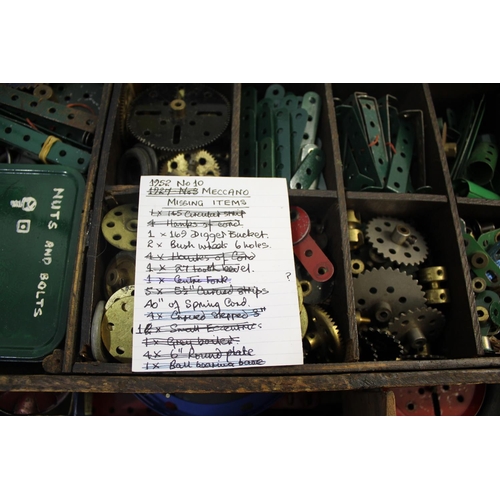 1952 No 10
1927 No3 MECCANO
MISSING ITEMS
1 x 145 Circular strip
4 Hanks of cord
1 x 169 Digger Bucket.
2 x Bush wheels 6 holes.
4 x Hanks of Cord
1 x 27 tooth bevel.
1 x Centre Fork
5 x 5½" Curved strips
40" of Spring Cord.
4 x Curved stepped 3"
12 x Small Eccentric
1 x Grey basket
4 x 6" Round plate
1 x Ball bearing base
?
NUTS AND BOLTS